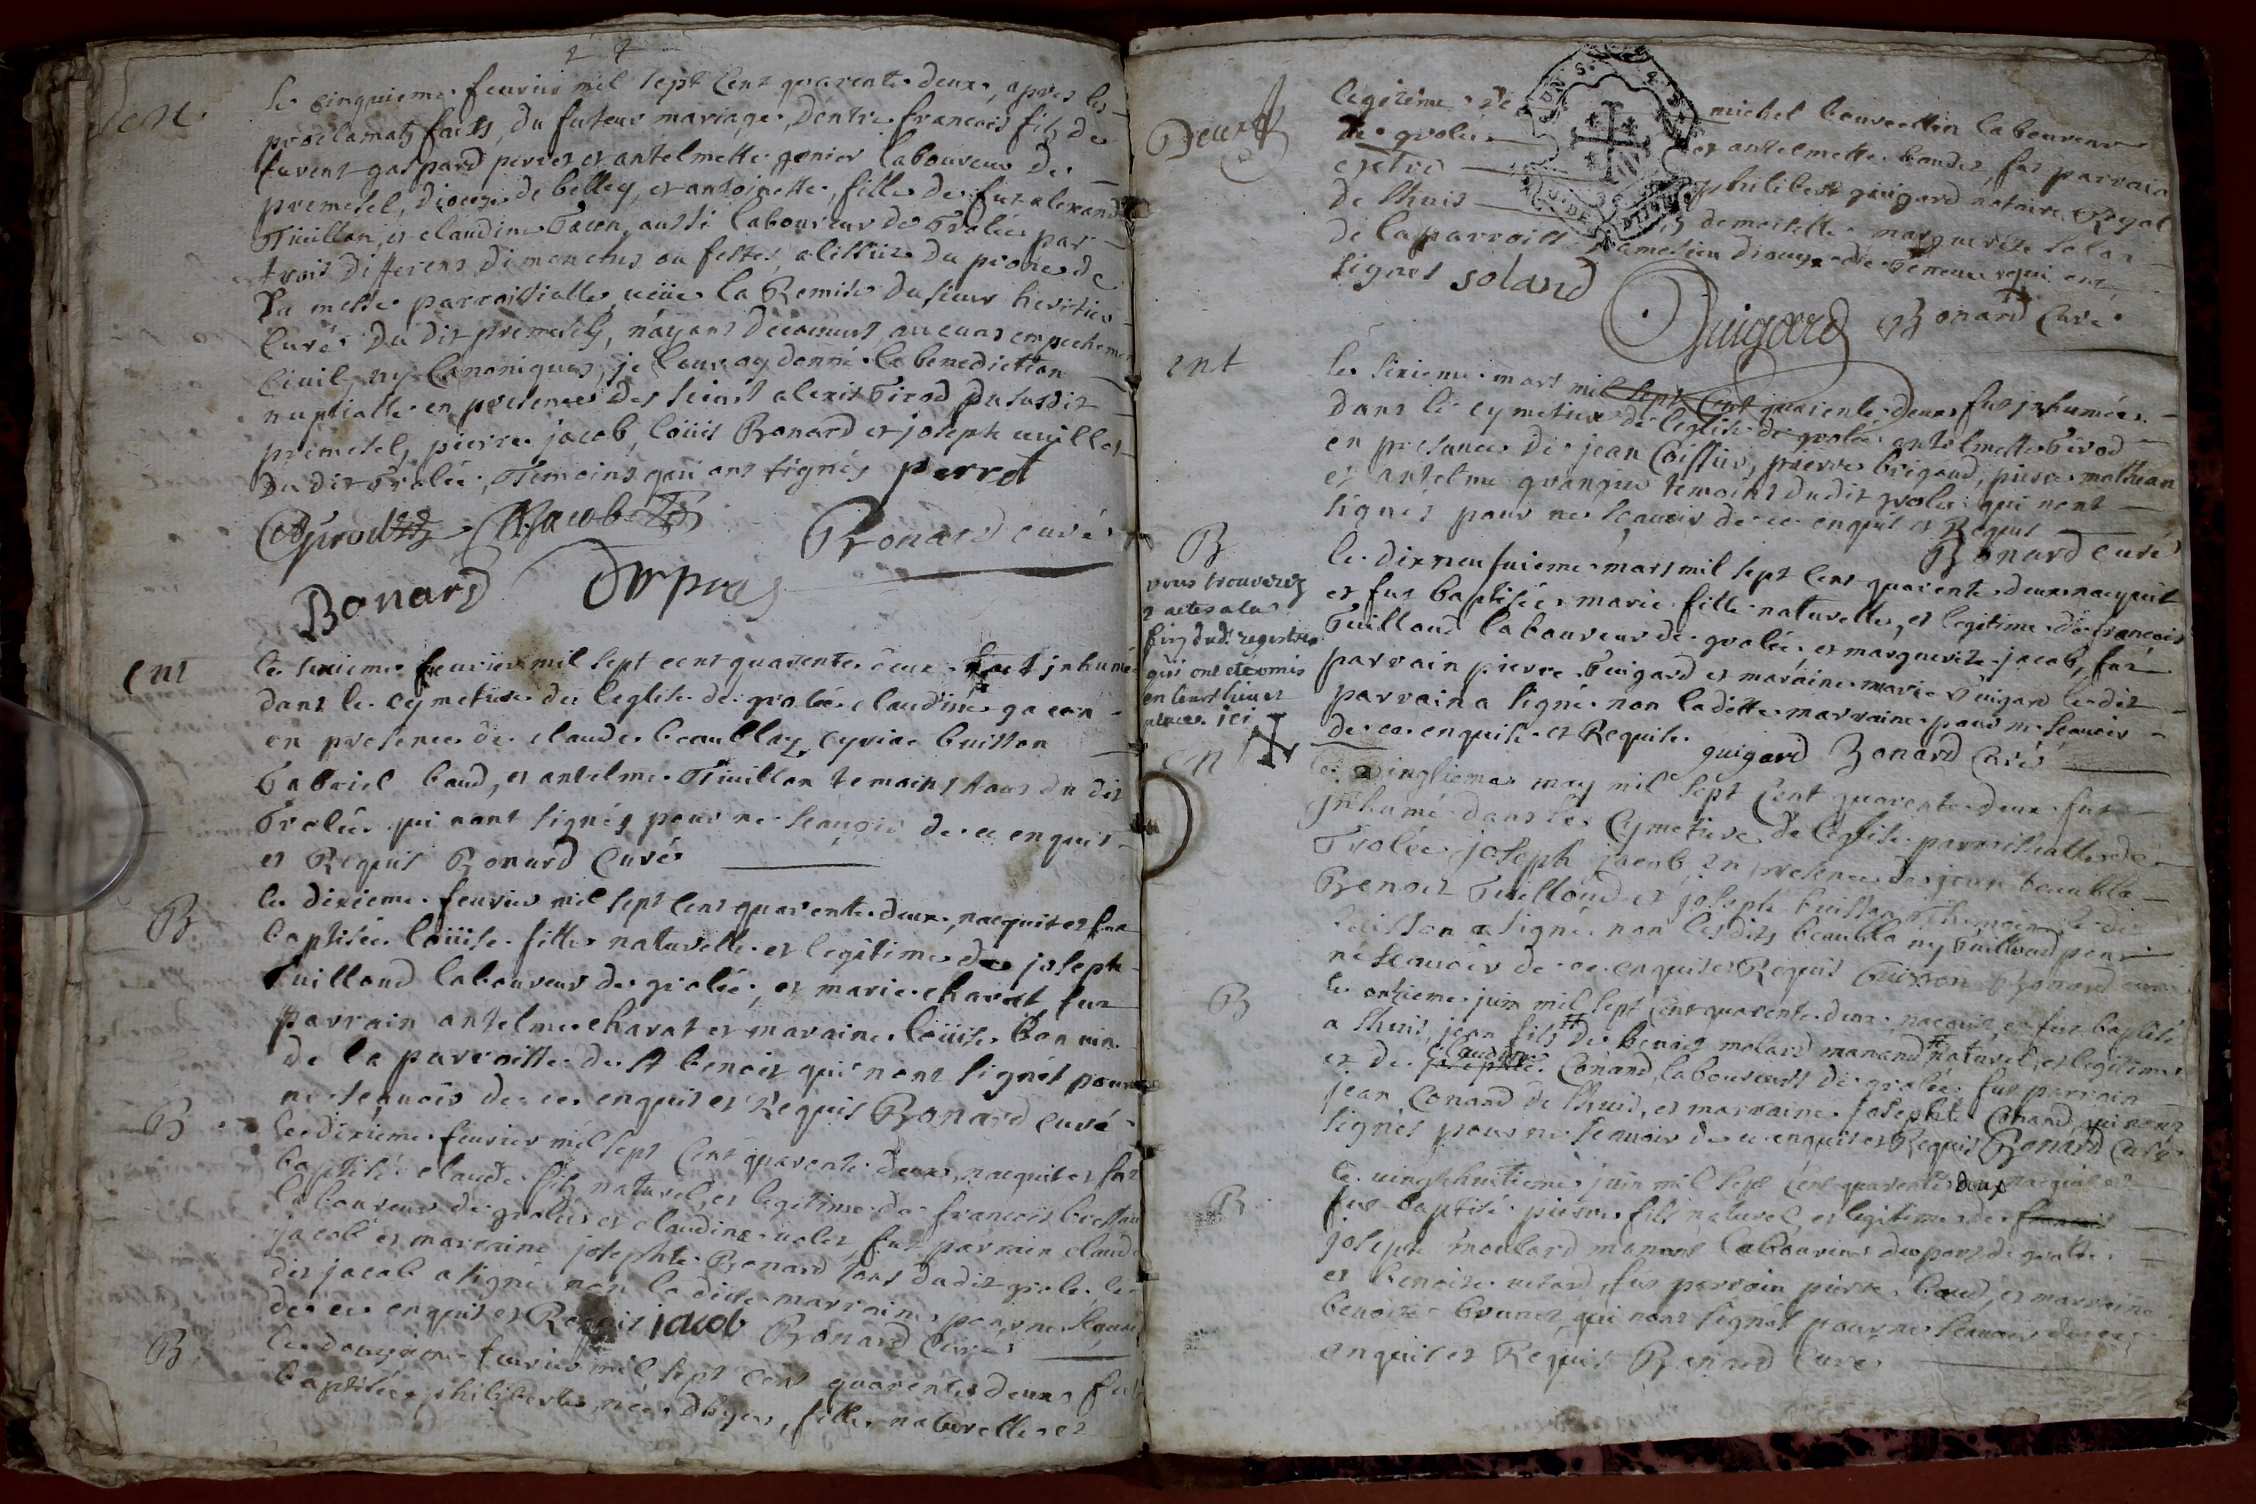 le cinquieme feurier mil sept cent quarente deux, apres les
proclamatz faits, du futeur mariage, dentre francois filz de
furent gaspard perret et antelmette genier laboureur de
premesel, diocese de belley, et antoinette, fille de fut alexandre
et claudine aussi laboureur de Grolée par
trois differens dimenches ou festes, a lissüe du prone de
la messe parroissialle, veüe la Remise du sieur heritier
Curé du dit premesel, n'ayant decouvert aucuns empechemens
Civil ny Canoniques, je leur ay donné la benediction
nuptialle en presence des sieurs alexis Girod du susdit
premesel, pierre jacob, loüis Bonard et joseph
du dit Grolée, Temoins qui ont signés perret
Jacob
Bonard curé
Bonard
ent
le sixieme feurier mil sept cent quarente deux inhumée
dans le cymetiere de leglise de grolée claudine
en presence de claude beaublay cyriac buisson
Gabriel baud, et antelme temoins tous du dit
Grolée qui nont signés pour ne sçauoir de ce enquis
et Requis Bonard Curé
B
le dixieme feurier mil sept cent quarente deux, nacquit et fut
baptisée loüise fille naturelle et legitime de joseph
Guilloud laboureur de grolée, et marie charat fut
parrain antelme charat et maraine loüise bon
de la parroisse de st benoit qui nont signés pour
ne sçauoir de ce enquis et Requis Bonard curé
B
le dixieme feurier mil sept Cent quarente deux, nacquit et fut
baptisé claude filz naturel, et legitime de francois
laboureur de grolée et claudine fut parrain claude
jacob et marraine josephte Bonard tous dudit grolée, le
dit jacob a signé non la dite marraine pour ne sçauoir
de ce enquis et Requis jacob Bonard Curé
B
le douzieme feurier mil sept Cent quarente deux fut
baptisée philiberte, née dhyer, fille naturelle et
legitime de michel laboureur
de grolée et antelmette baudet, fut parrain
philibert guigard notaire Royal
de lhuis demoiselle marguerite solan
de la parroisse
signés soland
Guigard Bonard Curé
ent
le sixieme mars mil sept Cent quarente deux fut inhumée
dans le cymetiere de leglise de grolée antelmette Girod
en presance de jean Coissier, pierre brigand, pierre
et antelme grangier temoins dudit grolée qui nont
signés pour ne sçauoir de ce enquis et Requis
Bonard Curé
B
le dixneufuieme mars mil sept Cent quarente deux nacquit
et fut baptisée marie fille naturelle, et legitime de francois
Guilloud laboureur de grolée et marguerite jacob, fut
parrain pierre Guigard et maraine marie Guigard ledit
parrain a signé non ladite marraine pour ne sçauoir
de ce enquise et Requise. guigard Bonard Curé
vous trouverez
2 actes a la
fin dud. registre
qui ont ete omis
en leurs lieu et
place ici
ent
may mil sept Cent quarente deux fut
inhumé dans le Cymetiere de leglise parroissialle de
Grolée joseph jacob, en presence de jean beaubla
Benoit Guilloud et joseph buisson
buisson a signé non lesdits beaubla ny Guilloud pour
ne sçauoir de ce enquis et Requis buisson Bonard curé
B
le onzieme juin mil sept Cent quarente deux nacquit et fut baptisé
a lhuis, jean fils de benoit molard manand naturel, et legitime
et de claudine josephte Conand, laboureurs de grolée fut parrain
jean Conand de lhuis, et marraine Josephte Conand qui nont
signés pour ne sçauoir de ce enquis et Requis Bonard Curé
B
le vingthuitieme juin mil sept Cent quarente deux nacquit et
fut baptisé pierre fils naturel et legitime de francois
joseph moulard manant laboureur du port de grolée
et benoite fut parrain pierre baud, et marraine
benoite brunet, qui nont signés pour ne sçauoir de ce
enquis et Requis Bonard Curé